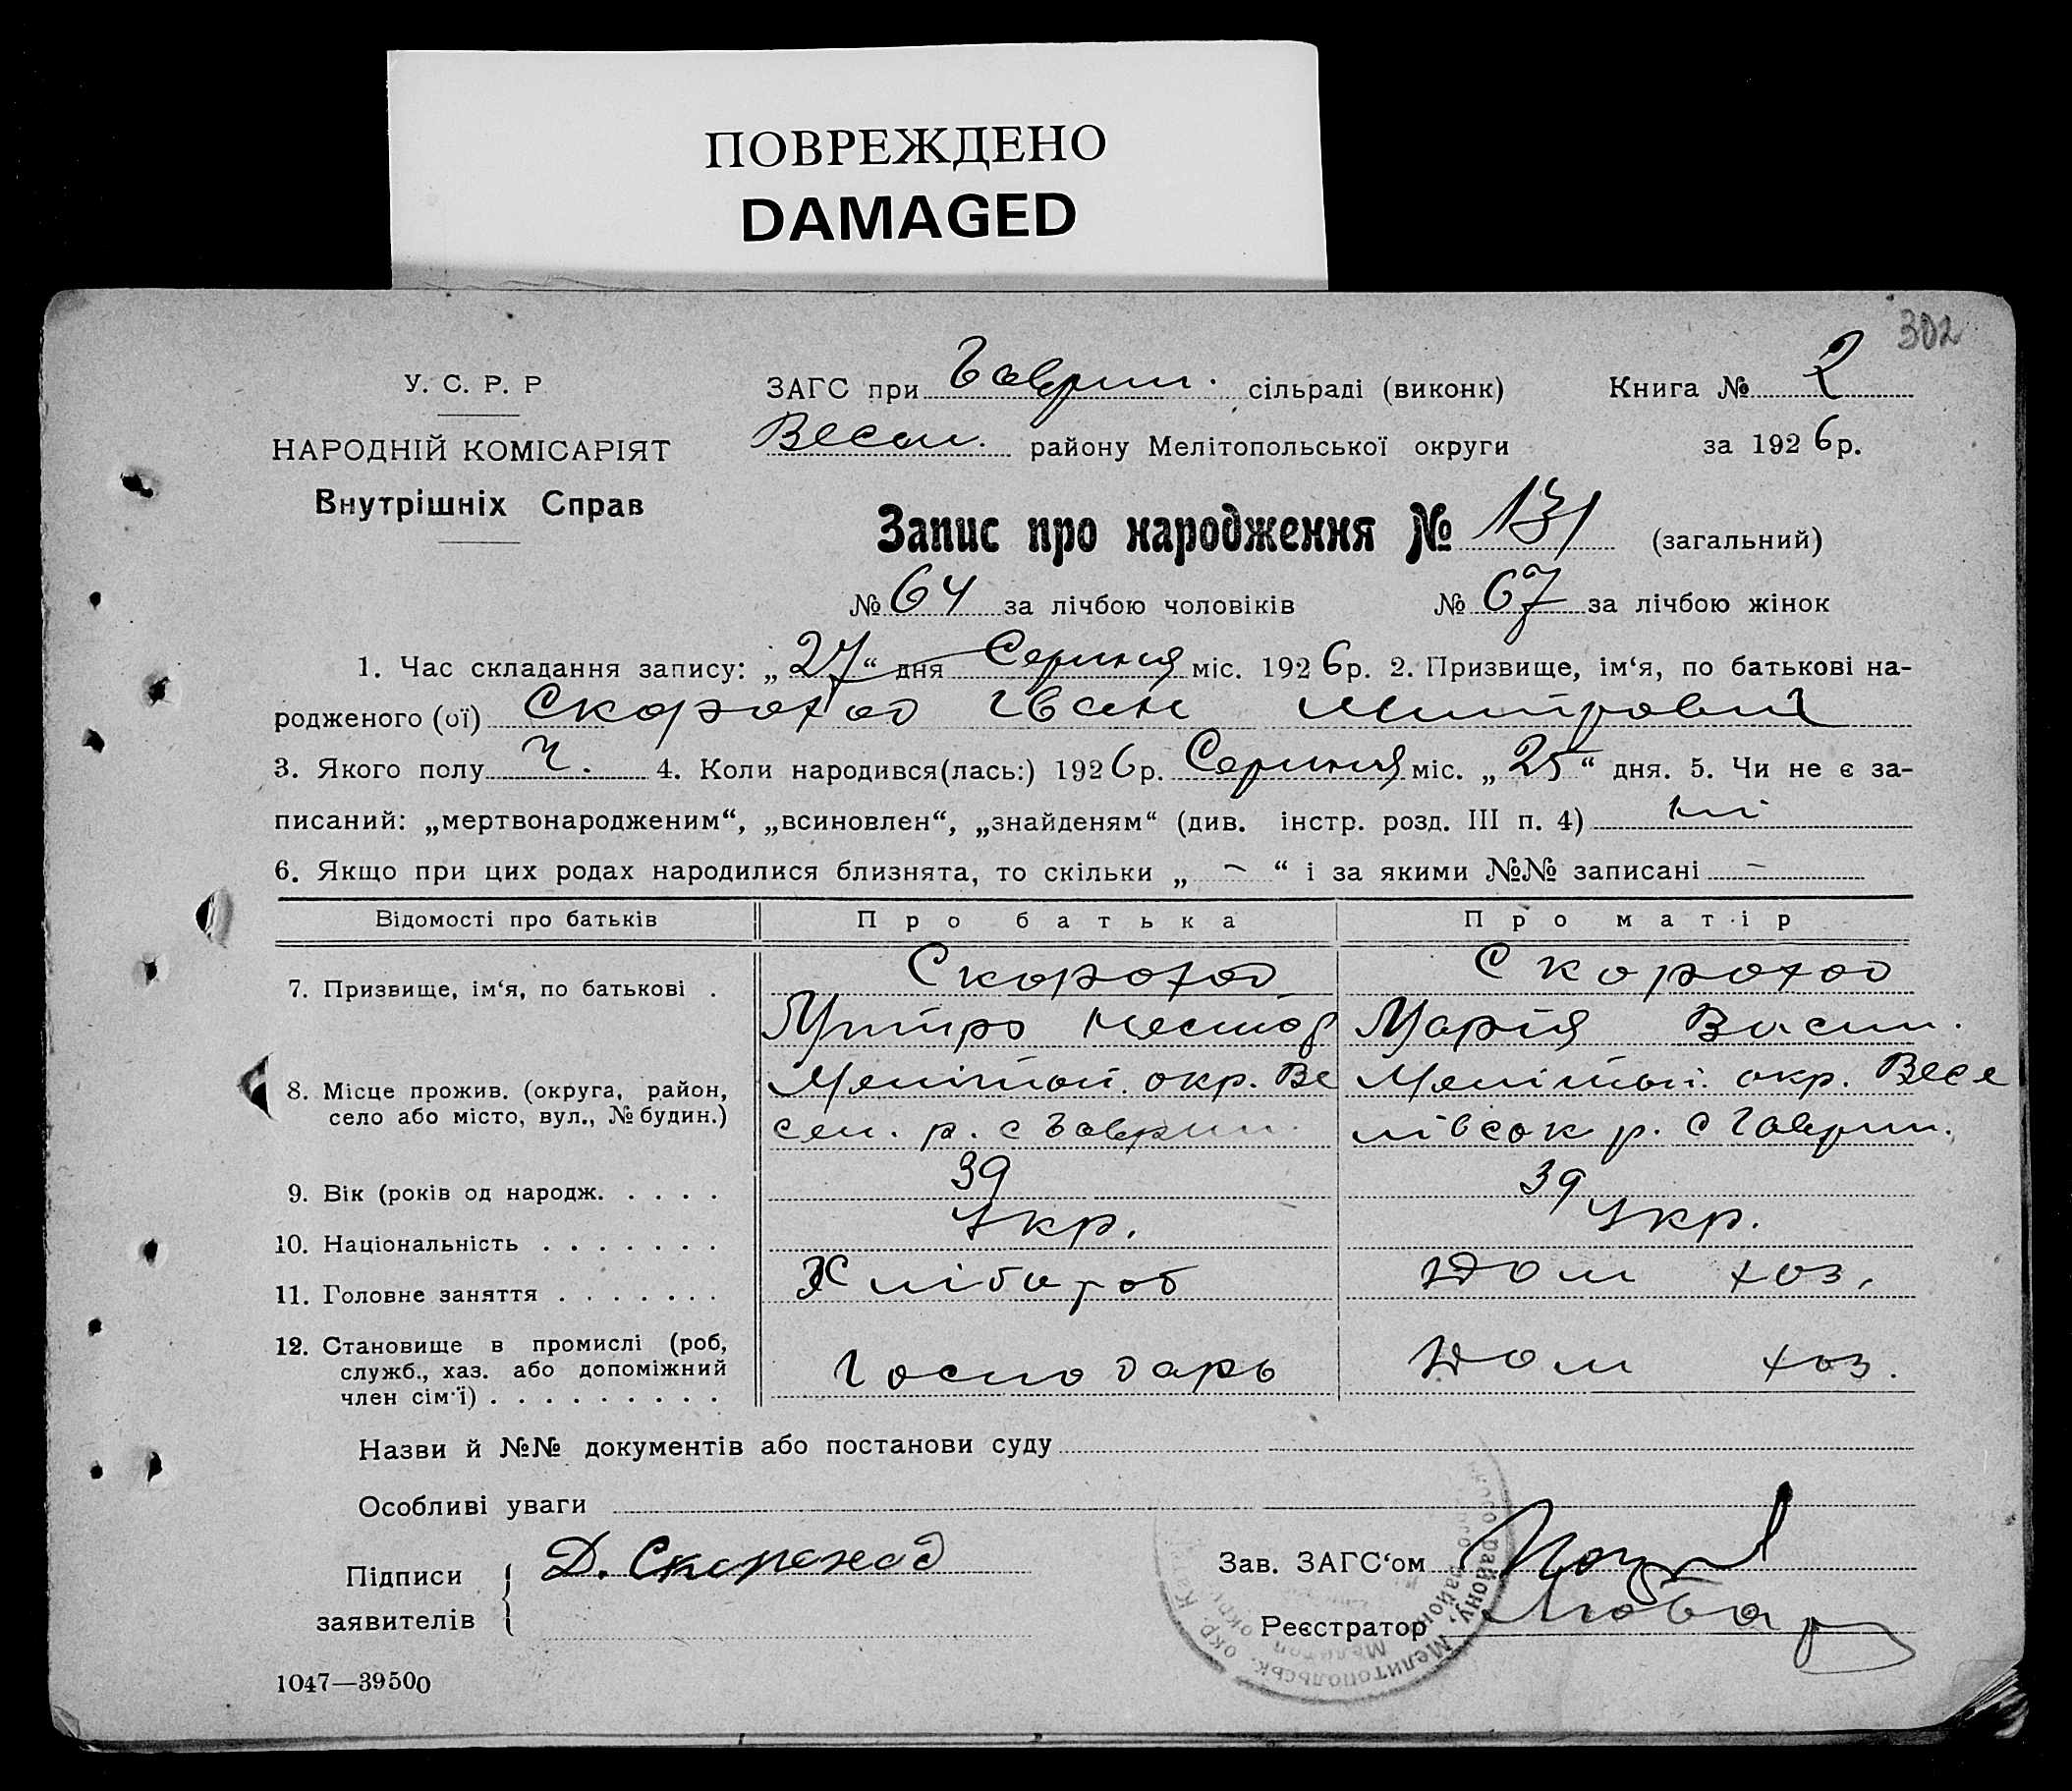 ПОВРЕЖДЕНО
DAMAGED
302
У. С. Р. Р
НАРОДНІЙ КОМІСАРІЯТ
Внутрішніх Справ
ЗАГС при Гаврил. сільраді (виконк)
Весел. району Мелітопольської округи
Книга № 2
за 1926р.
Запис про народження № 131 (загальний)
№ 64 за лічбою чоловіків № 67 за лічбою жінок
1. Час складання запису: „27“ дня Серпня міс. 1926р. 2. Призвище, ім‘я, по батькові на-
родженого (ої) Скороход Іван Митрович
3. Якого полу Ч. 4. Коли народився(лась:) 1926р. Серпня міс. „25“ дня. 5. Чи не є за-
писаний: „мертвонародженим“, „всиновлен“, „знайденям“ (див. інстр. розд. III п. 4) ні
6. Якщо при цих родах народилися близнята, то скільки „ – “ і за якими №№ записані –
Відомості про батьків Про батька Про матір
7. Призвище, ім‘я, по батькові . Скороход Скороход
Митро Нестор Марія Васил.
8. Місце прожив. (округа, район, Меліто́п. окр. Ве Мелітоп. окр. Весе
село або місто, вул., № будин.) сел. р. с Гаврил. лівськ р. с Гаврил.
9. Вік (років од народж. . . . . 39 39
10. Національність . . . . . . . Укр. Укр.
11. Головне заняття . . . . . . . Хлібороб Дом хоз.
12. Становище в промислі (роб,
служб., хаз. або допоміжний Господарь Дом хоз.
член сім‘ї) . . . . . . . . .
Назви й №№ документів або постанови суду
Особливі уваги
Підписи Д. Скороход
заявителів
Зав. ЗАГС‘ом
Реєстратор
району, Мелитопольск. окр.
1047—39500